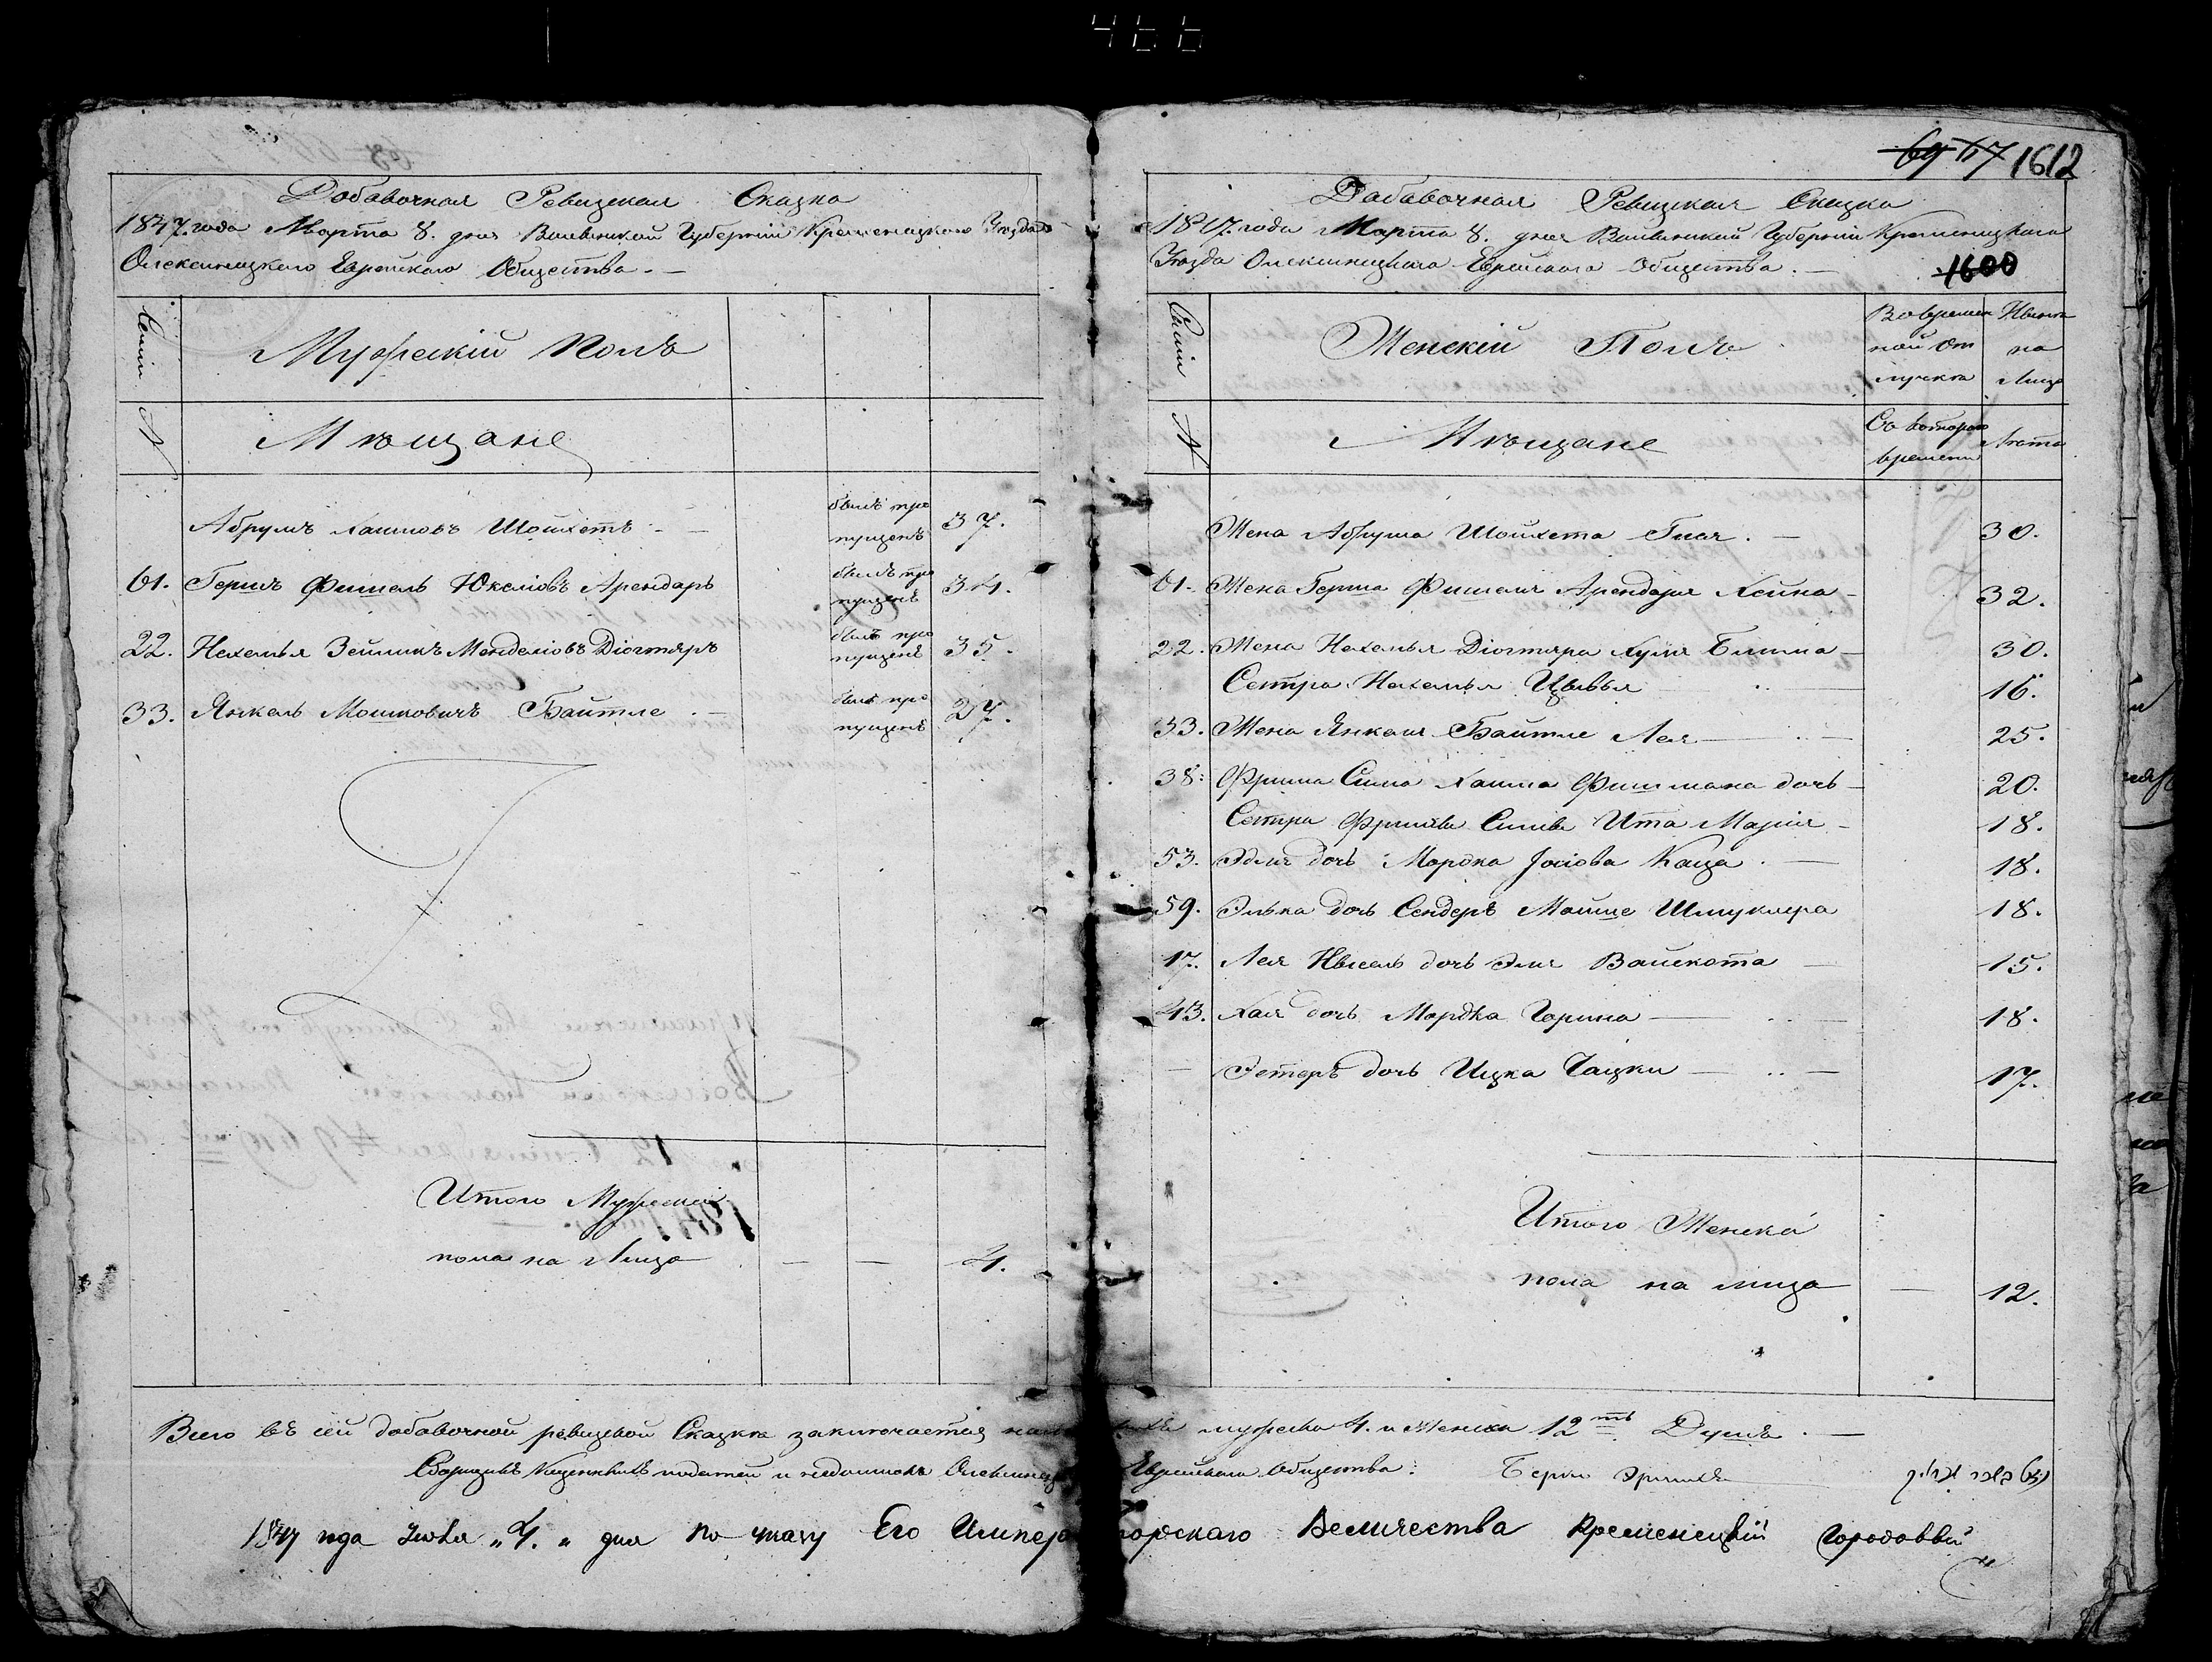 466
69 67 1612
Добавочная Ревизская Сказка
1847. года Марта 8. дня Волынской Губернии Кременецкого Уезда
Олексинецкого Еврейского Общества. —
Семьи
Мужескiй Полъ
№
Мѣщане
Абрумъ Хаимовъ Шойхетъ — былъ пропущенъ 37.
61. Гершъ Фишель Юкелiовъ Арендаръ былъ пропущенъ 34.
22. Нехемья Зейликъ Менделiовъ Дiогтяръ былъ пропущенъ 35.
33. Янкель Мошковичъ Байтле — былъ пропущенъ 27.
Итого Мужеска
пола на Лицо — — 4.
Добавочная Ревизская Сказка
1847 года Марта 8. дня Волынской Губернiи Кременецкого
Уезда Олексинецкого Еврейского Общества. —
1600
Семьи
Женскiй Полъ
Во временной отлучкѣ
Нынѣ на Лицо
№
Мѣщане
Съ котораго времени
Лѣта
Жена Абрума Шойхета Гися. — 30.
61. Жена Герша Фишеля Арендаря Хейна — 32.
22. Жена Нехемья Дiогтяра Хуля Блима — 30.
Сестра Нехемья Цывья — 16.
33. Жена Янкеля Байтле Лея — 25.
38. Фрима Сима Хаима Фишмана дочь — 20.
Сестра Фримы Симы Ита Марiя — 18.
53. Эдля дочь Мордка Iосiова Каца. — 18.
59. Элька дочь Сендеръ Мойше Шмуклера 18.
17. Лея Нысель дочь Эля Вайскота — 15.
43. Хая дочь Мордка Горина — 18.
— Эстеръ дочь Ицка Чацки — 17.
Итого Женска
пола на лицо — 12.
Всего въ сей добавочной ревизской Сказкѣ заключается мужеска 4. и Женска 12ть Душъ. —
Сборщикъ Казенныхъ податей и недоимокъ Еврейского Общества: Берко
1847 года Iюля "4." дня По указу Его Императорскаго Величества Кременецкiй Городовый